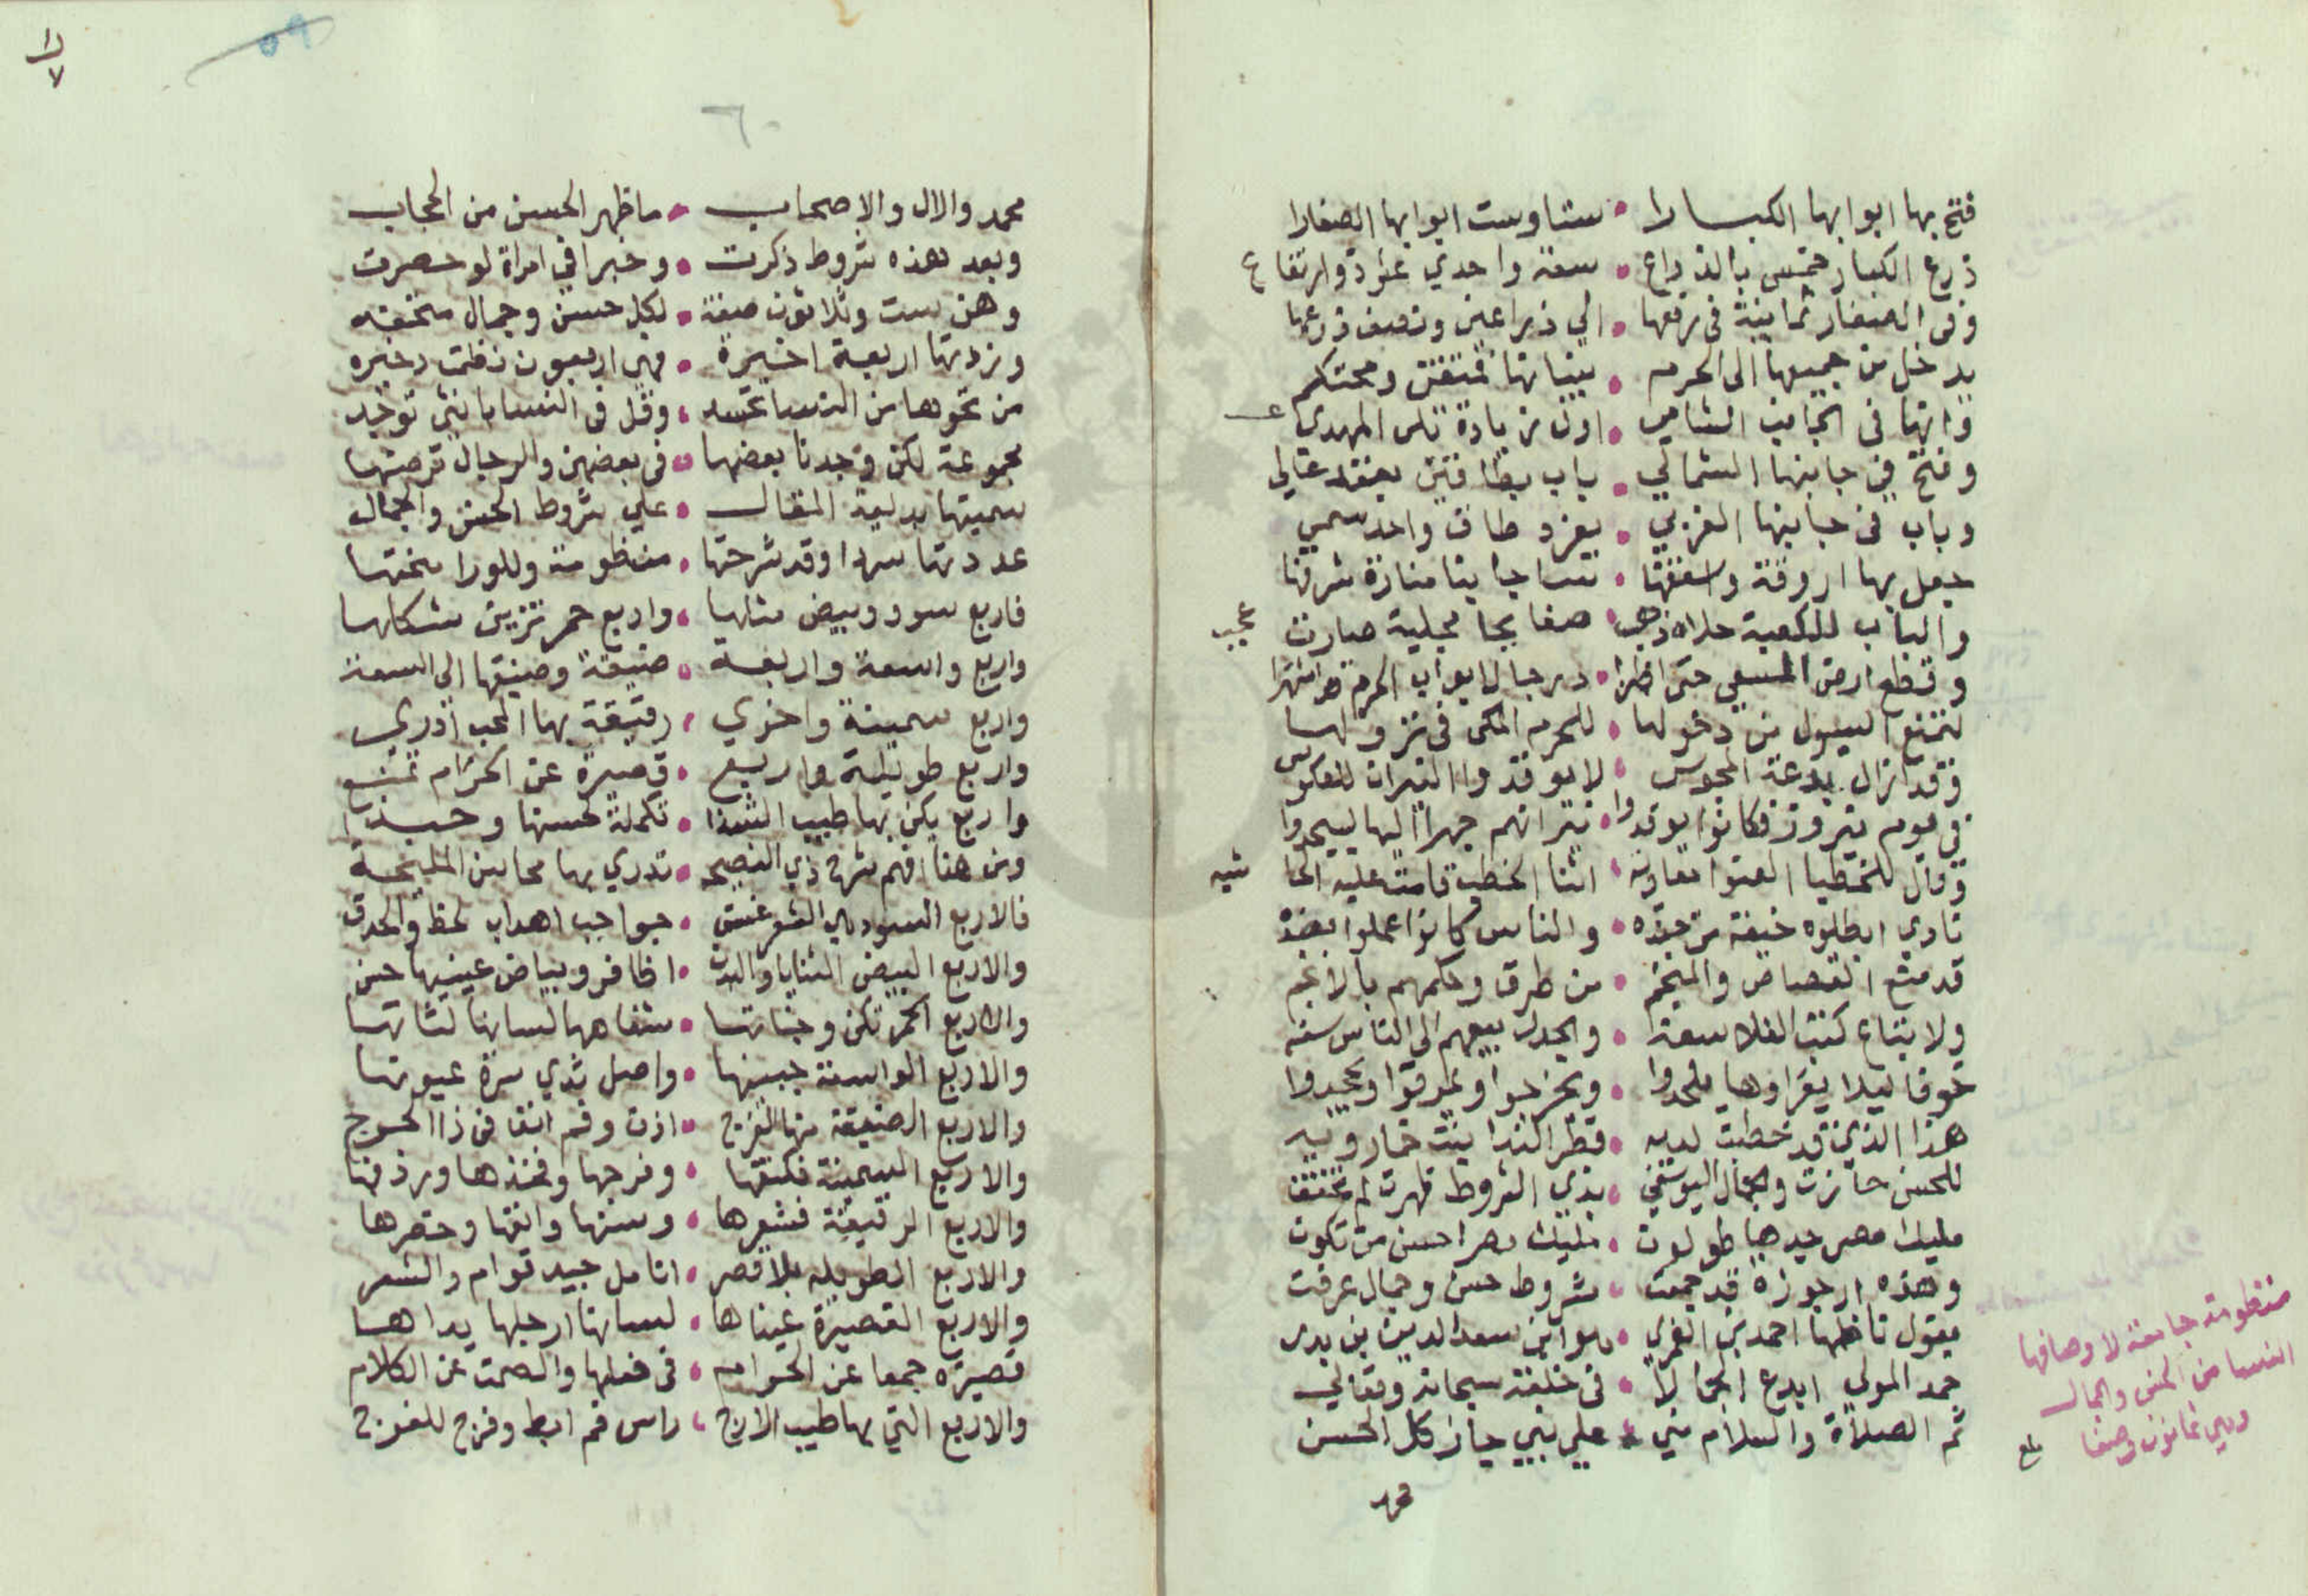 فتح بها ابوابها الكبارا • ستا وست ابوابها الصغارا
ذرع الكبار خمس بالذراع • سعة واحدي عشرة وارتفاع
وفى الصغار ثمانية فى رفعها • الي ذراعين ونصف ذرعها
يدخل من جميعها الى الحرم • بنيانها متقن ومحتكم
وانها فى الجانب الشامي • اول زيادة تلى المهدي
وفتح في جانبها الشمالي • باب بطاقتين بعقد عالي
وباب فى جانبها الغربي • بفرد طاق واحد سمي
جعل بها اروقة واسقفها • نساجا بنا منارة شرفتا
والباب للكعبة حلاه ذهب • صفايحا مجلية صارت عجب
وقطع ارض المسعي حتى اظهرا • درجا لابواب الحرم هو اشهرا
لتمنع السيول من دخولها • للحرم المكى فى نزولها
وقد ازال بدعة المجوس • لا يوقدوا النيران للعكوس
فى يوم نيروز فكانوا يوقدوا • نيرانهم جهرا اليها ليسجدوا
وقال للخطبا العنوا معاوية • اثنا الخطب قامت عليه الحاشيه
نادي ابطلوه خيفة من جنده • والناس كانوا عملوا بضده
قد منع القصاص والمنجم • من طرق وحكمهم بالانجم
ولا يتباع كتب الفلاسفة • والجدل بيعهم الى الناس سفه
خوفا ليلا يقراوها يلحدوا • ويخرجوا ويمرقوا ويجحدوا
هذا الذي قد خطبت لديه • قطر الندا بنت خمارويه
للحسن حازت والجمال اليوسفي • بذي الشروط ظهرت لم تختفى
مليك مصر جدها طولون • مليك مصر احسن من تكون
وهذه ارجوزة قد جمعت • شروط حسن وجمال عرفت
يقول ناظمها احمد بن الغمري • هو ابن سعد الدين بن بدر
حمد المولي ابدع الجمالا • فى خلقه سبحانه وتعالي
ثم الصلاة والسلام مني • علي نبي حاز كل الحسن
محمد
منظومة جامعة لاوصافها
النسا من الحسن والجمال
وهي ثمانون وصفا
بلغ
٦٠
محمد والال والاصحاب • ما ظهر الحسن من الحجاب
وبعد هذه شروط ذكرت • وخبرا في امراة لو حصرت
وهن ست وثلاثون صفة • لكل حسن وجمال متحفه
وزدتها اربعة اخيرة • فهى اربعون نظمت دخيره
من نحوها من النسا تحسد • وقل فى النسا بانثى توجد
مجموعة لكن وجدنا بعضها • فى بعضهن والرجال ترضها
سميتها بدلية المقال • علي شروط الحسن والجمال
عددتها سردا وقد شرحتها • منظومة وللورا منحتها
فاربع سود وبيض مثلها • واربع حمر تزين شكلها
واربع واسعة واربعة • ضيقة وضيقها الى السعة
واربع سمينة واخري • رقيقة بها المحب ادري
واربع طويلة واربع • قصيرة عن الحرام تمنع
واربع يكن بها طيب الشذا • تكملة لحسنها وحبذا
ومن هنا افهم شرح ذي النصيحه • تدري بها محاسن المليحة
فالاربع السود هي الشعر غسق • حواجب اهداب لحظ والحدق
والاربع البيض الثنايا والبدن • اظافر وبياض عينيها حسن
والاربع الحمر تكن وجناتها • شفاهها لسانها لثاتها
والاربع الواسعة جبينها • واصل ثدي سرة عيونها
والاربع الضيقة منها الفرج • اذن وفم انفا فى ذا الحرج
والاربع السمينة فكتفها • وفرجها وفخذها وردفها
والاربع الرقيقة فشعرها • وسنها وانفها وخصرها
والاربع الطويله بلا قصر • انامل جيد قوام والشعر
والاربع القصيرة عيناها • لسانها ارجلها يداها
قصيره جمعا عن الحرام • فى فعلها والصمت عن الكلام
والاربع التي بها طيب الارج • راس فم ابط وفرج للفرج